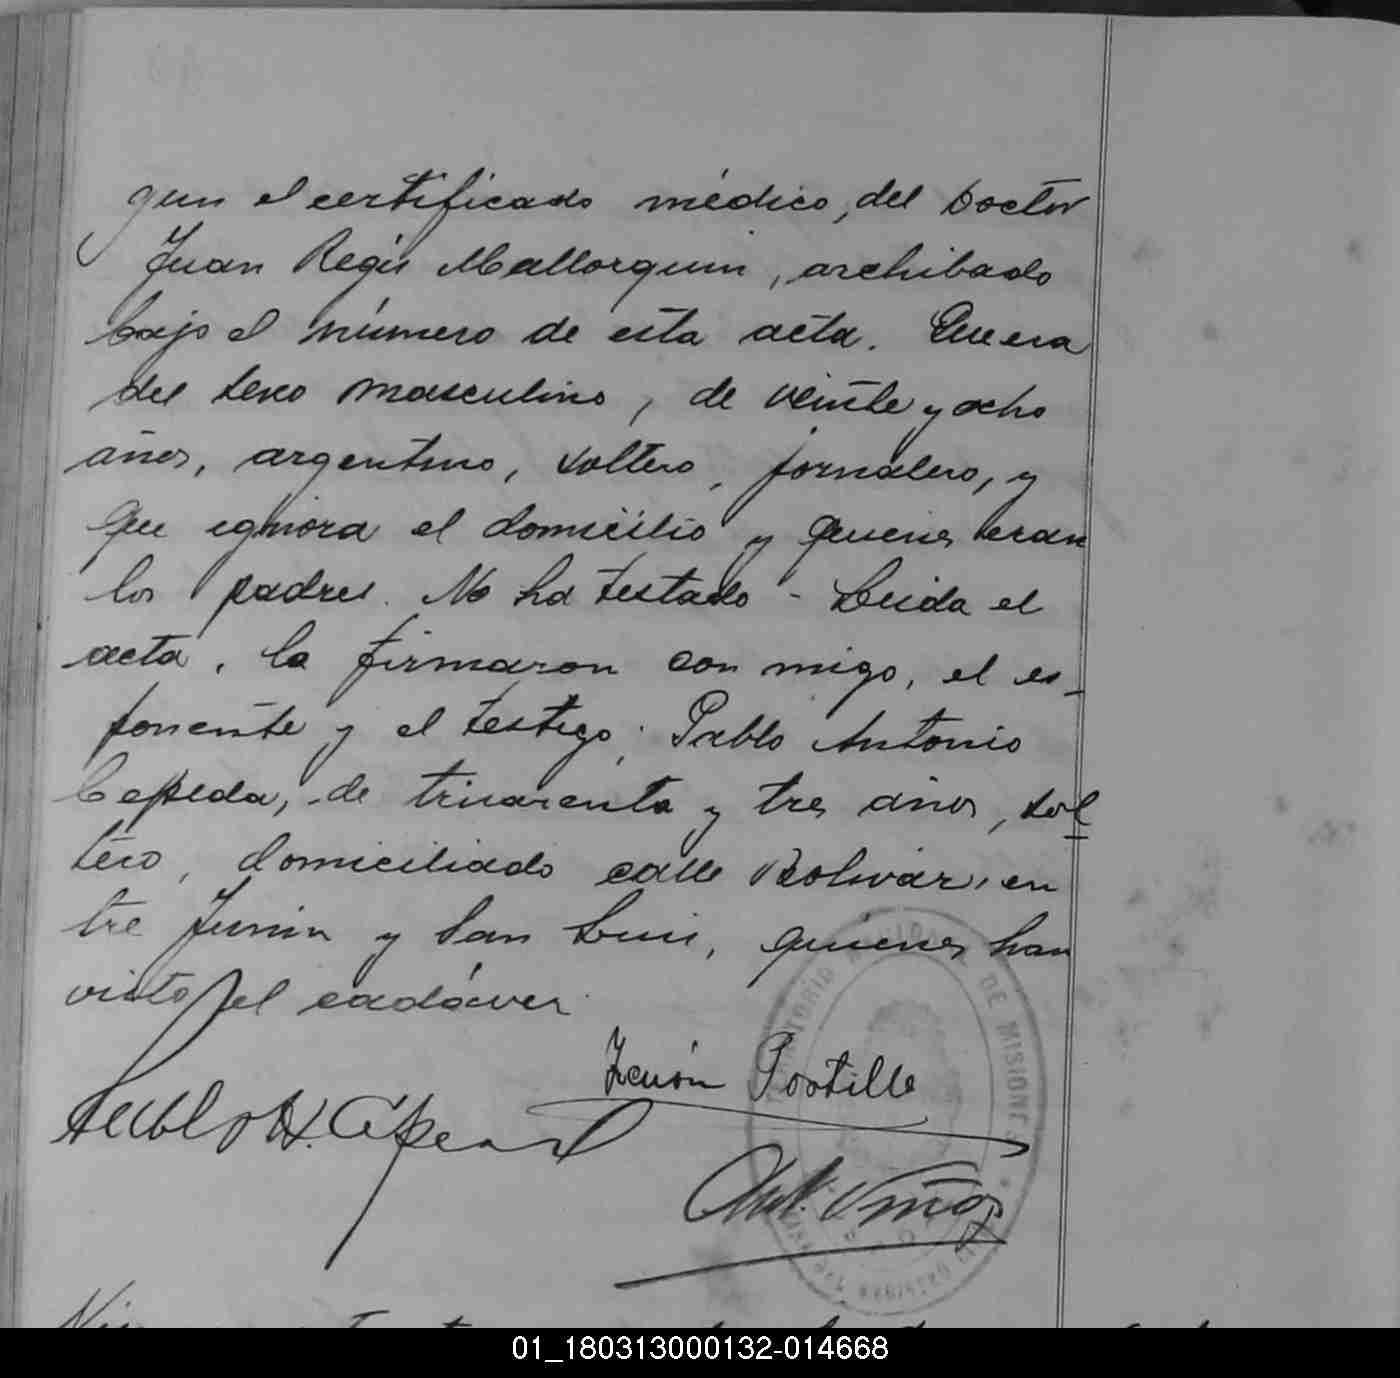 gun el certificado médico, del Doctor
Juan Regis Mallorquin, archibado
bajo el número de esta acta. Que era
del sexo masculino, de veinte y ocho
años, argentino, soltero, jornalero, y
que ignora el domicilio y quienes eran
los padres. No ha testado - Leida el
acta, la firmaron con migo, el es-
ponente y el testigo; Pablo Antonio
Cepeda, de y tres años, sol
tero, domiciliado calle Bolivar, en
tre Junin y San Luis, quienes han
visto el cadáver.
Zenón Portillo
Pablo A. Cepeda
Ant. Viñas
DE MISIONES
01_180313000132-014668